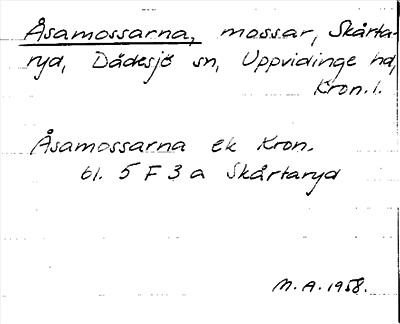 Åsamossarna, mossar, Skårta-
ryd, Dädesjö sn, Uppvidinge hd,
Kron. l.
Åsamossarna ek Kron.
bl. 5 F 3 a Skårtaryd
M. A. 1958.